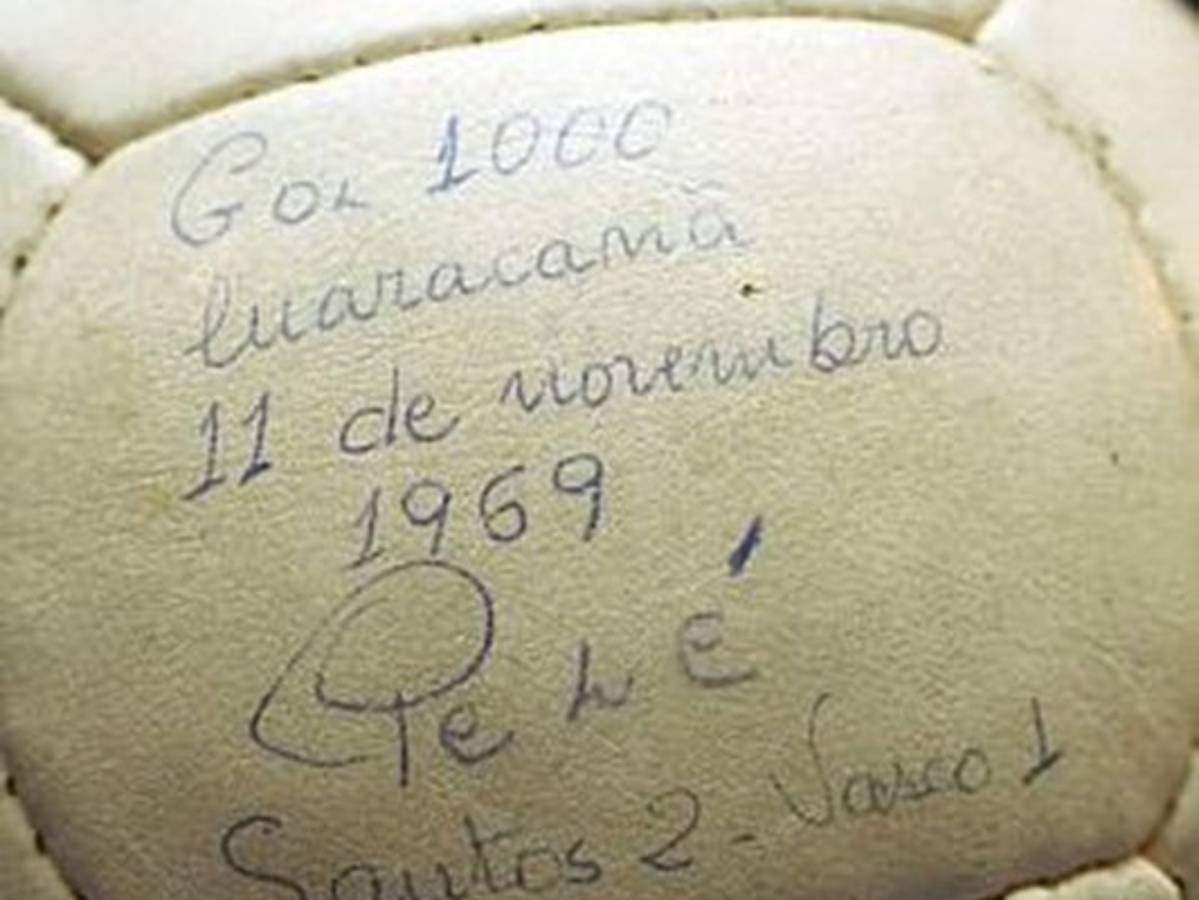 Gol 1000
Maracanã
11 de novembro
1969
Pelé
Santos 2 - Vasco 1